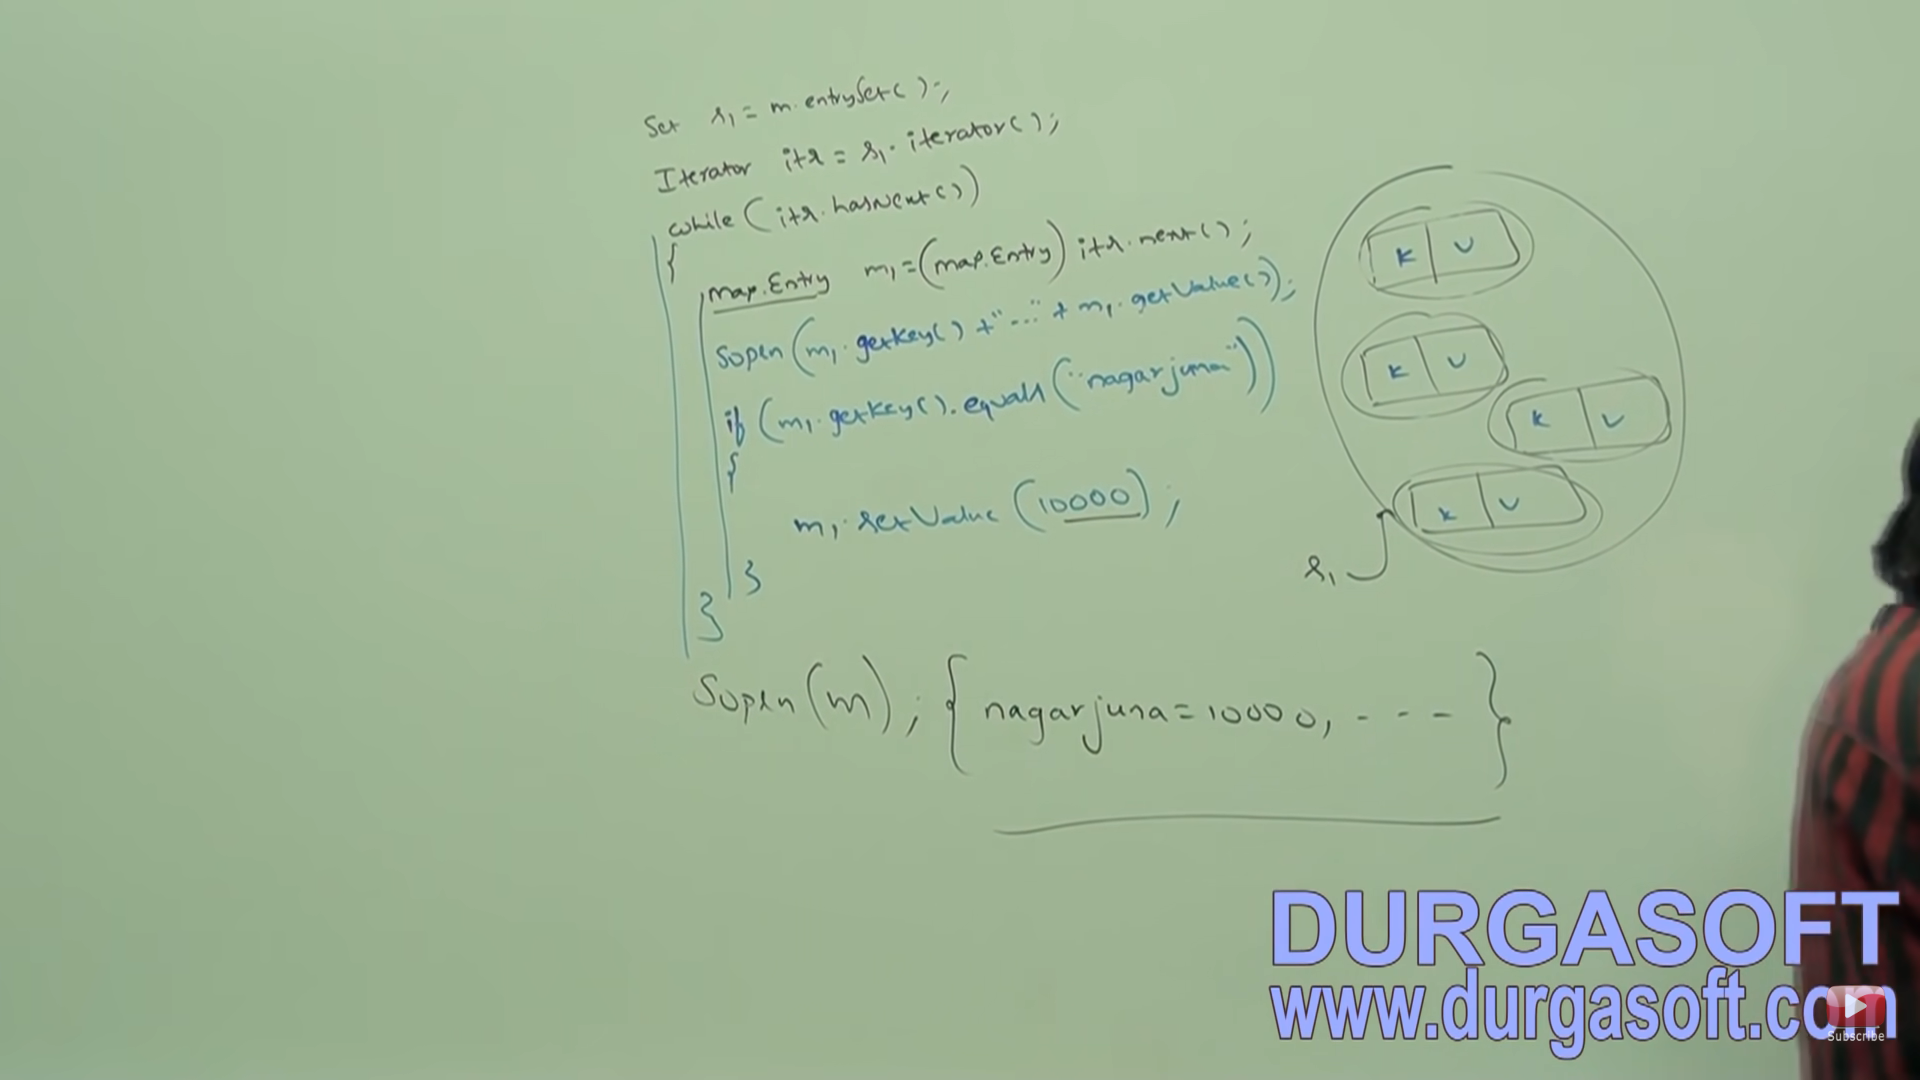 Set s1 = m.entrySet();
Iterator itr = s1.iterator();
while (itr.hasNext())
{
map.Entry m1 = (map.Entry) itr.next();
Sopln (m1.getKey() + "..." + m1.getValue());
if (m1.getKey().equals ("nagarjuna"))
{
m1.setValue (10000);
}
}
Sopln (m); { nagarjuna = 10000, - - - }
K V
K V
K V
K V
s1
DURGASOFT
www.durgasoft.com
Subscribe